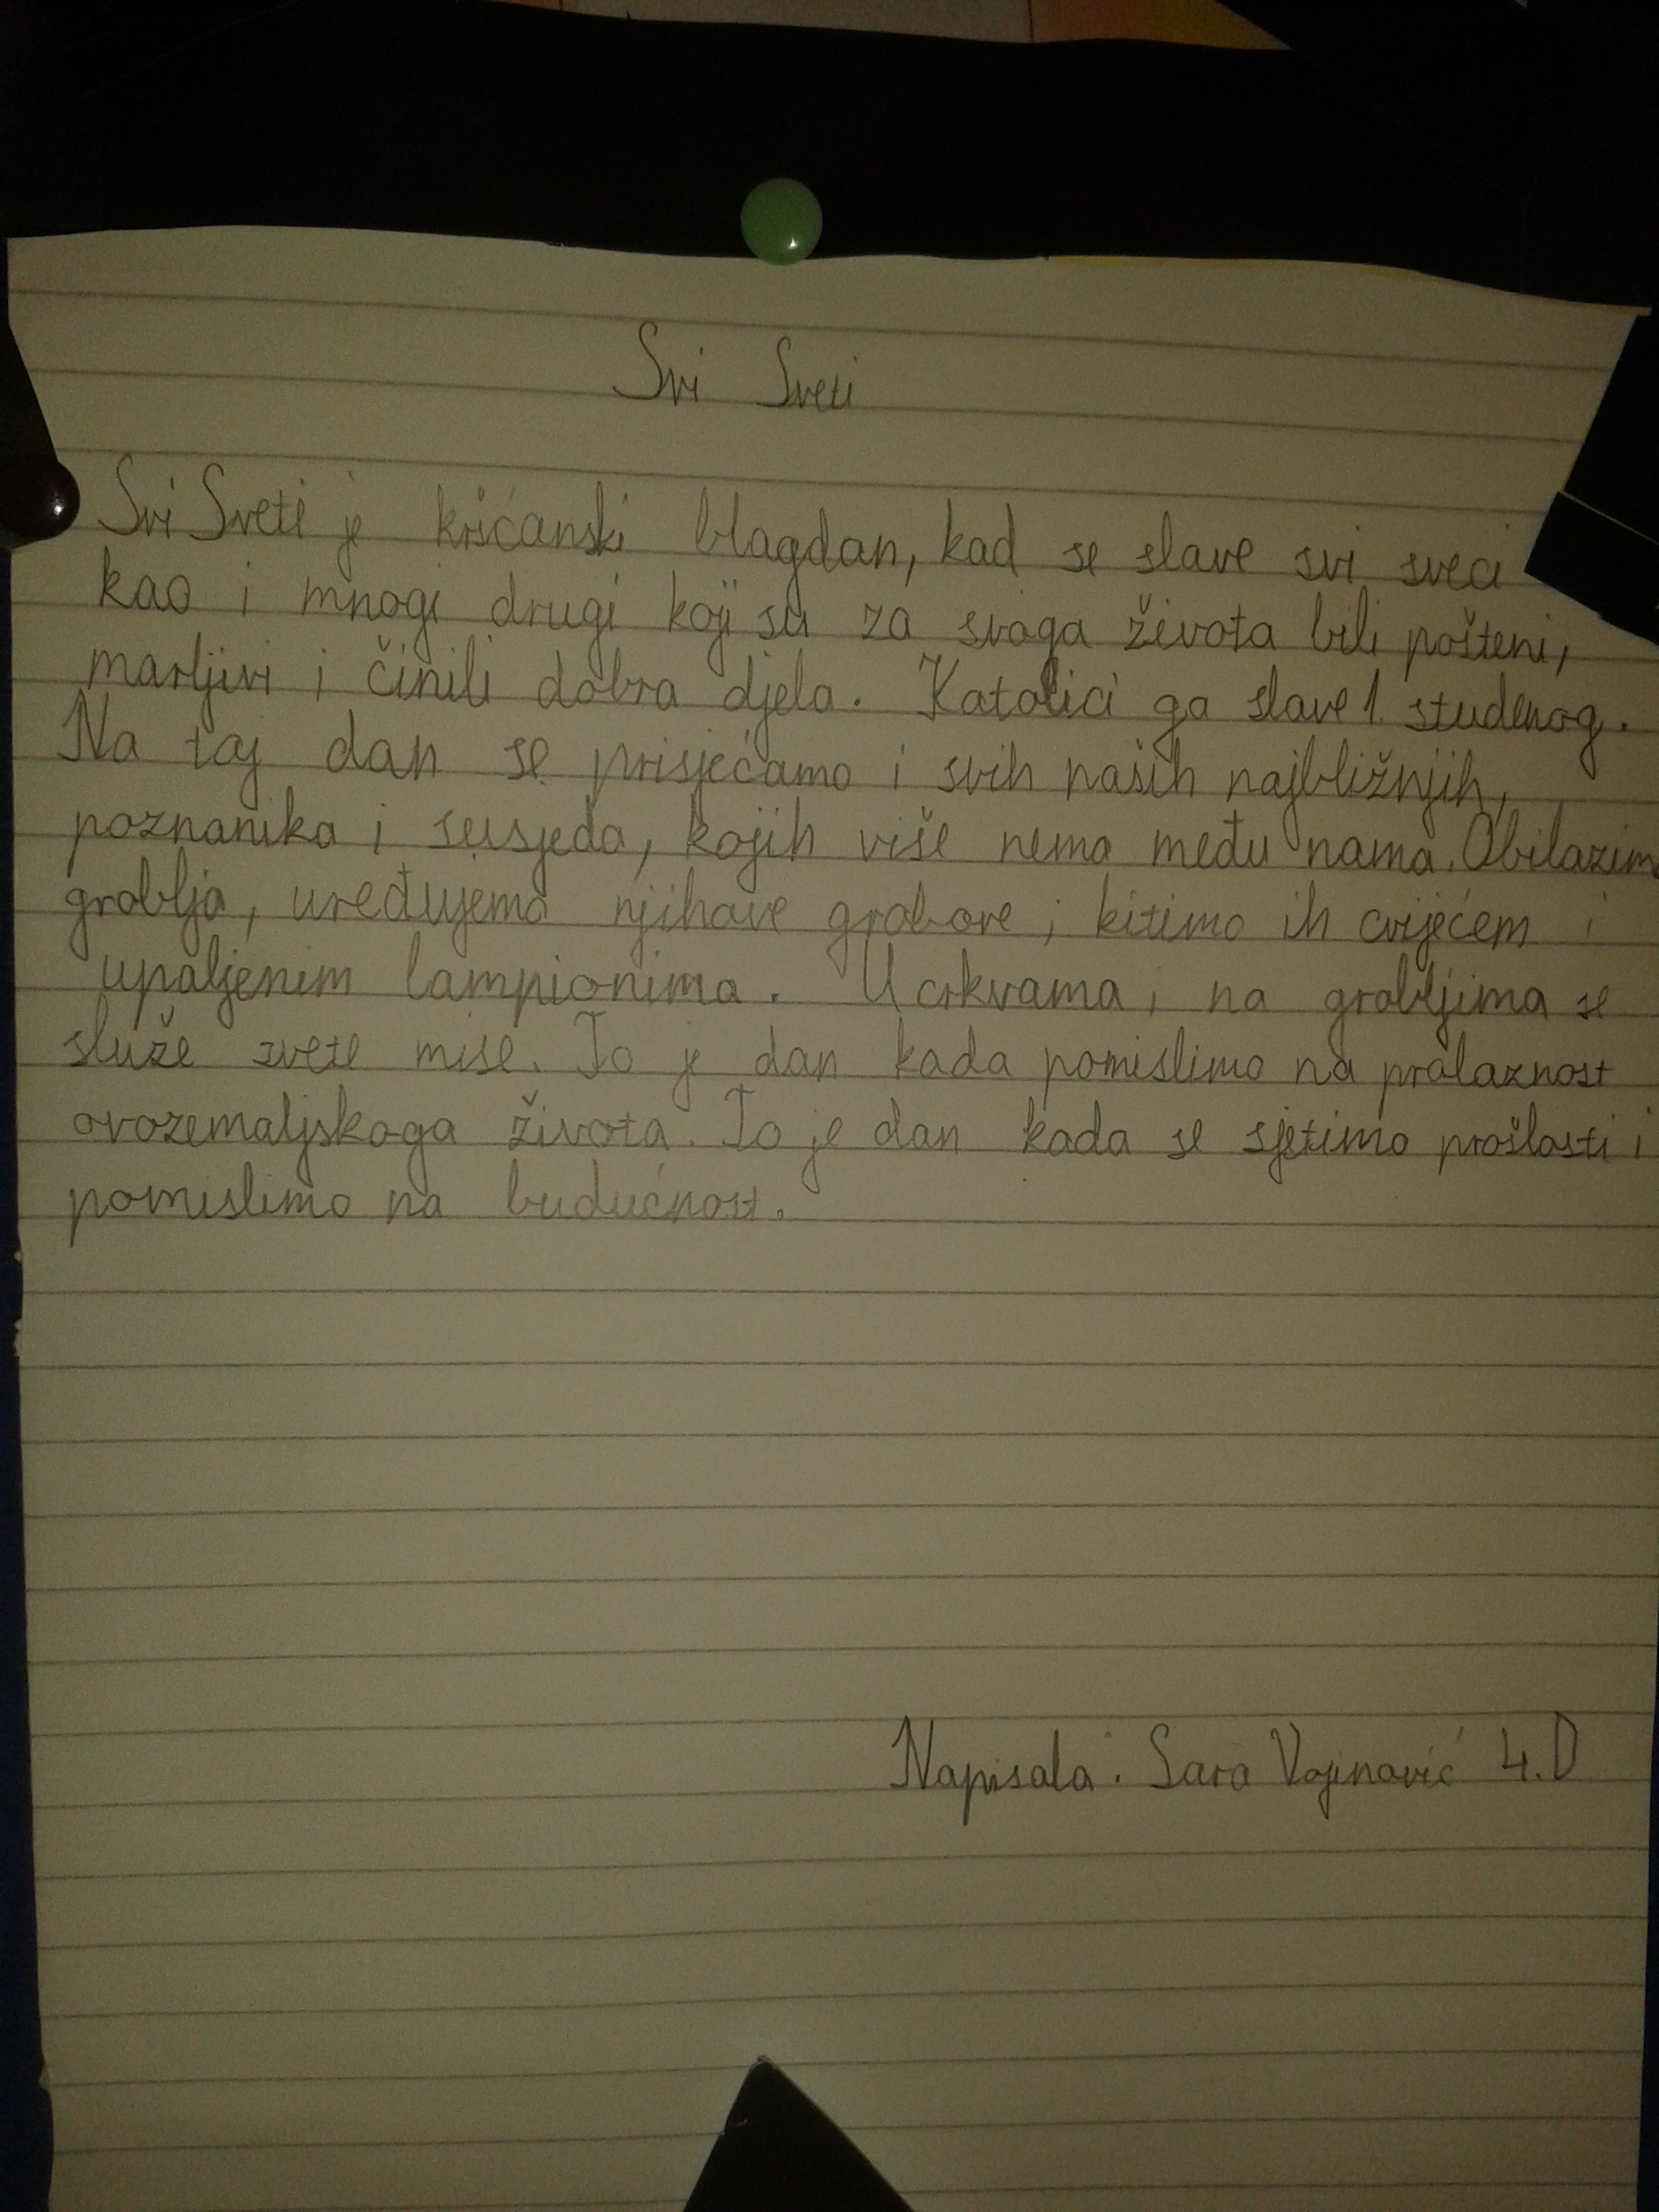 Svi Sveti
Svi Sveti je kršćanski blagdan, kad se slave svi sveci
kao i mnogi drugi koji su za svoga života bili pošteni,
marljivi i činili dobra djela. Katolici ga slave 1. studenog.
Na taj dan se prisjećamo i svih naših najbližnjih,
poznanika i susjeda, kojih više nema među nama. Obilazimo
groblja, uređujemo njihove grobove, kitimo ih cvijećem i
upaljenim lampionima. U crkvama i na grobljima se
služe svete mise. To je dan kada pomislimo na prolaznost
ovozemaljskoga života. To je dan kada se sjetimo prošlosti i
pomislimo na budućnost.
Napisala: Sara Vojinović 4.D